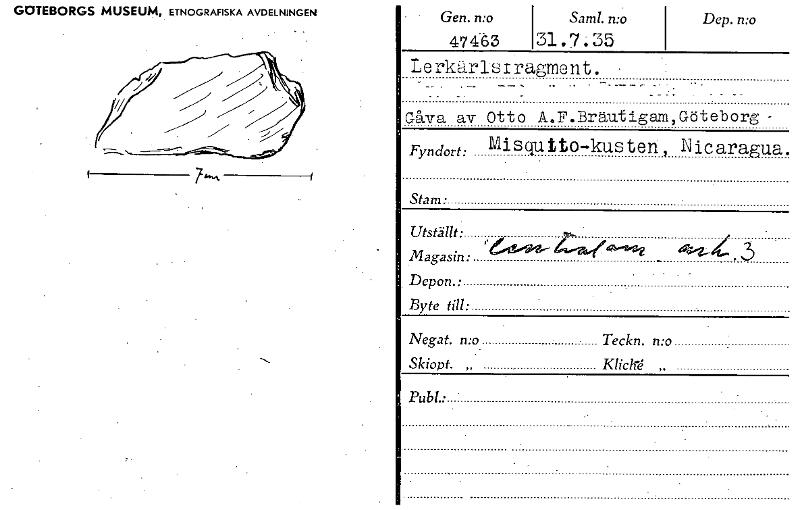 GÖTEBORGS MUSEUM, ETNOGRAFISKA AVDELNINGEN
7 cm
Gen. n:o Saml. n:o Dep. n:o
47463 31.7.35
Lerkärlsfragment.
Gåva av Otto A.F.Bräutigam,Göteborg
Fyndort: Misquito-kusten, Nicaragua.
Stam:
Utställt:
Magasin: Centralam ark. 3
Depon.:
Byte till:
Negat. n:o Teckn. n:o
Skiopt. „ Kliché „
Publ.: